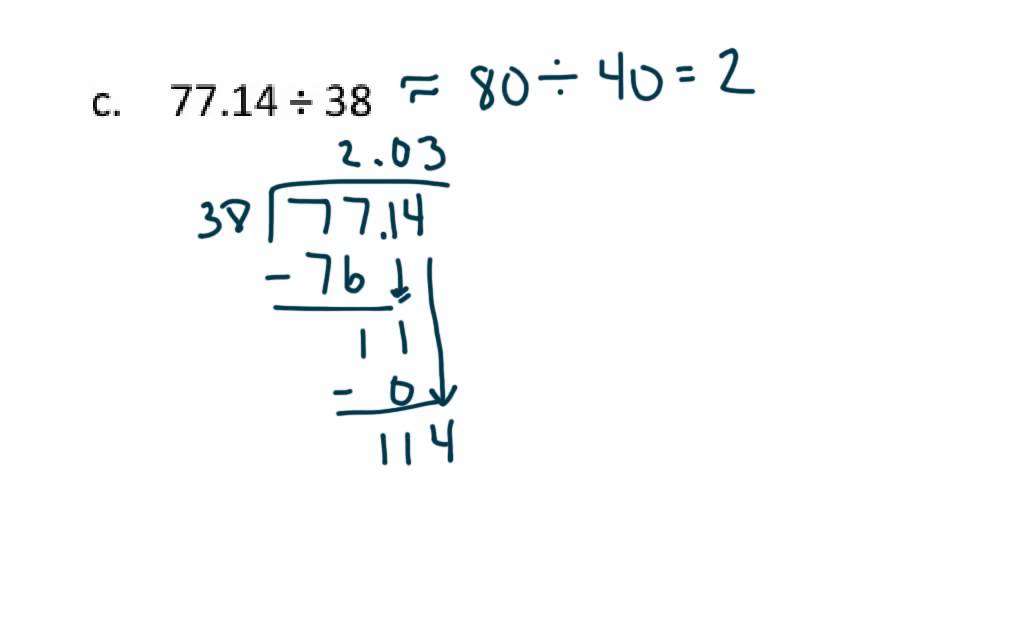 c. 77.14 ÷ 38 ≈ 80 ÷ 40 = 2
2.03
38 77.14
- 76
11
- 0
114